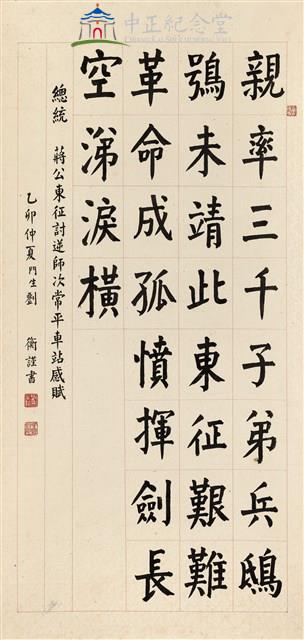 中正紀念堂
CHIANG KAI-SHEK MEMORIAL HALL
親率三千子弟兵鴟
鴞未靖此東征艱難
革命成孤憤揮劍長
空涕淚橫
總統 蔣公東征討逆師次常平車站感賦
乙卯仲夏門生劉 衡謹書